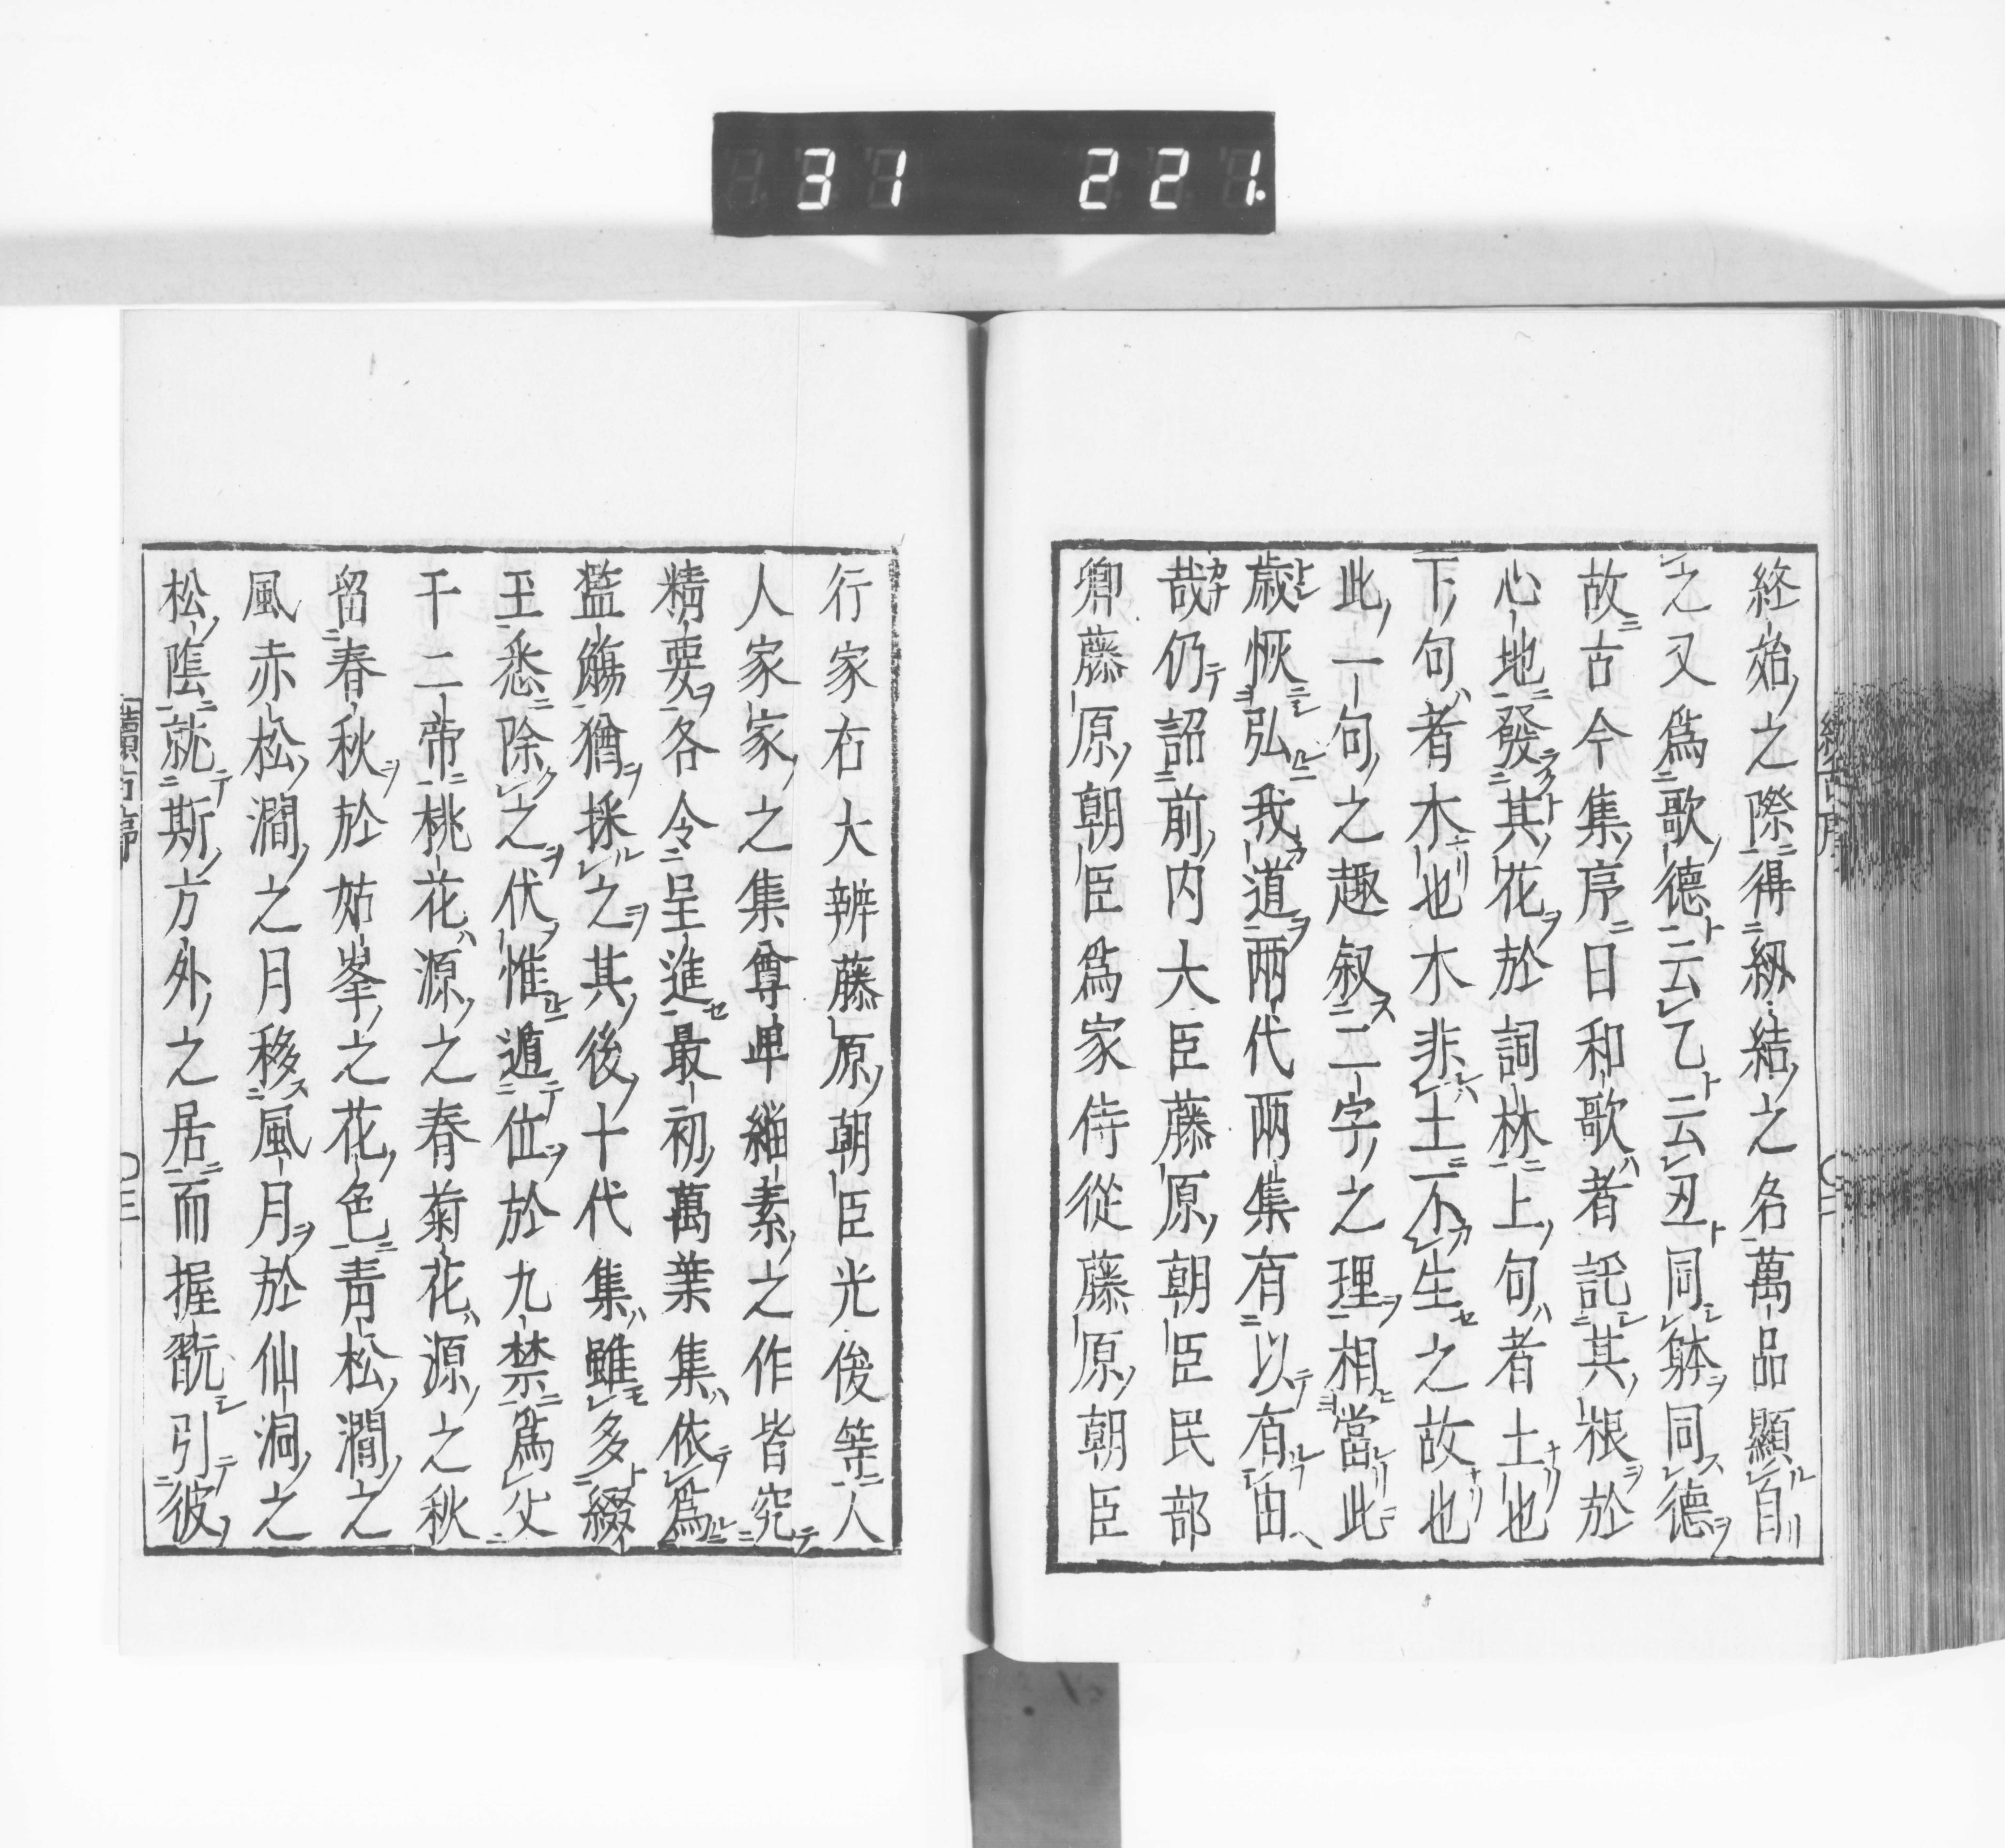 31 221.
終始之際得紉結之名萬品顯自
之又為歌德云乙云丑同躰同德
故古今集序曰和歌者託其根於
心地發其花於詞林上句者土也
下句者木也木非土不生之故也
此一句之趣叙二字之理相當此
歳恢弘我道兩代兩集有以有由
哉仍詔前内大臣藤原朝臣民部
卿藤原朝臣為家侍從藤原朝臣
行家右大辨藤原朝臣光俊等人
人家家之集尊卑緇素之作皆究
精要各令呈進最初萬葉集依為
濫觴猶採之其後十代集雖多綴
玉悉除之伏惟遁位於九禁為父
于二帝桃花源之春菊花源之秋
留春秋於姑峯之花色青松澗之
風赤松澗之月移風月於仙洞之
松陰就斯方外之居而握翫引彼
續古序
〇三